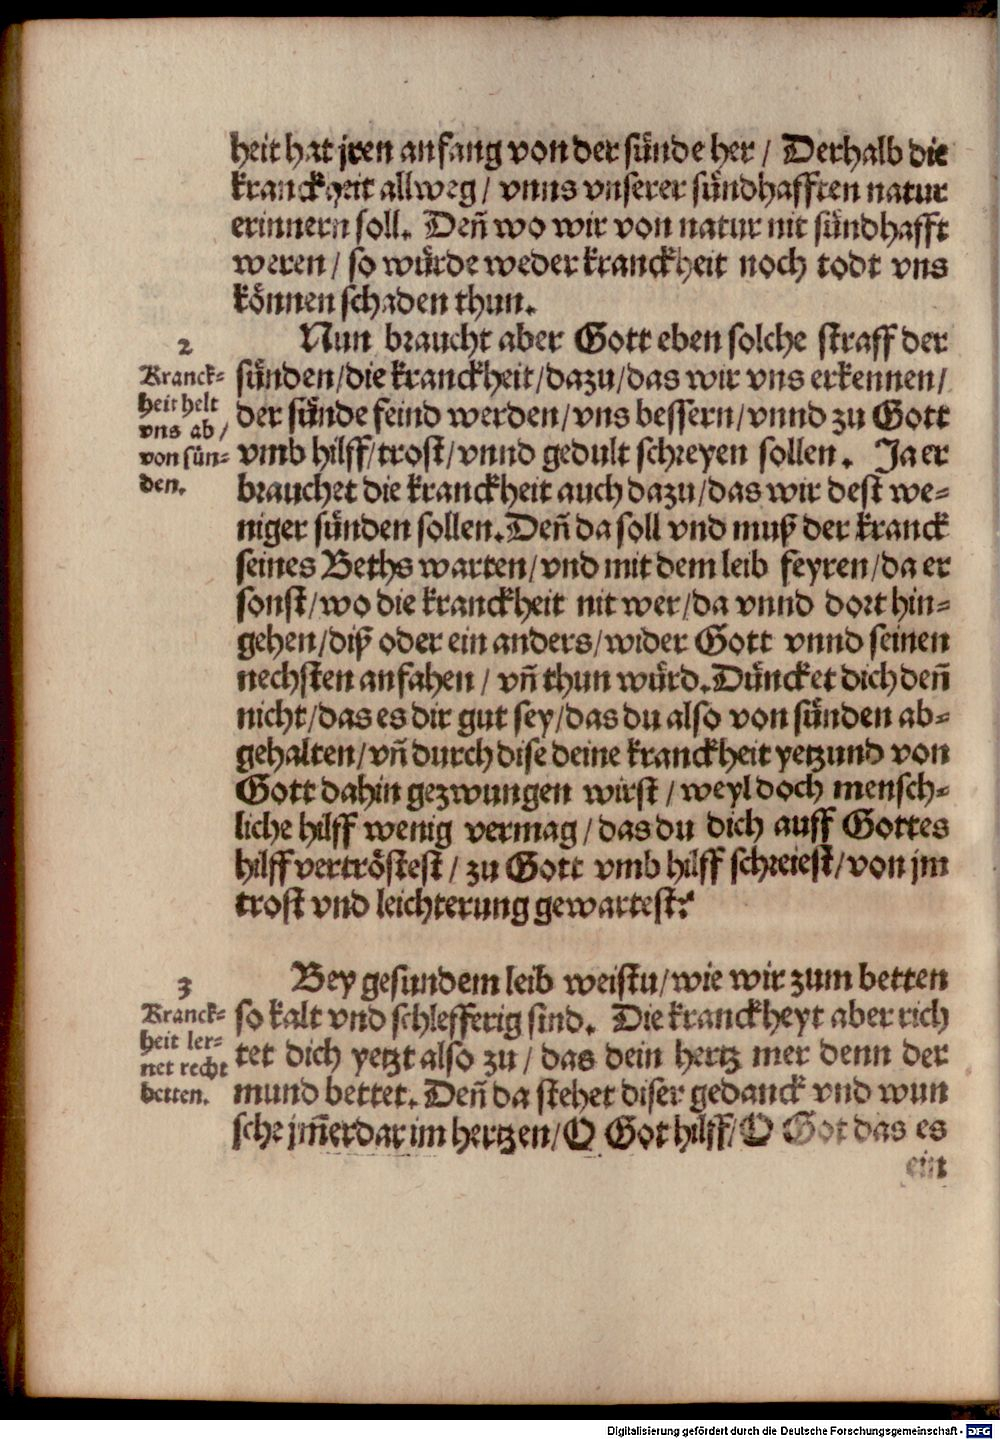 heit hat jren anfang von der sünde her / Derhalb die
kranckheit allweg / vnns vnserer sündhafften natur
erinnern soll. Deñ wo wir von natur nit sündhafft
weren / so würde weder kranckheit noch todt vns
können schaden thun.
2
Kranck-
heit helt
vns ab /
von sün-
den.
Nun braucht aber Gott eben solche straff der
sünden / die kranckheit / dazu / das wir vns erkennen /
der sünde feind werden / vns bessern / vnnd zu Gott
vmb hilff / trost / vnnd gedult schreyen sollen. Ja er
brauchet die kranckheit auch dazu / das wir dest we-
niger sünden sollen. Deñ da soll vnd muß der kranck
seines Beths warten / vnd mit dem leib feyren / da er
sonst / wo die kranckheit nit wer / da vnnd dort hin-
gehen / diß oder ein anders / wider Gott vnnd seinen
nechsten anfahen / vñ thun würd. Düncket dich deñ
nicht / das es dir gut sey / das du also von sünden ab-
gehalten / vñ durch dise deine kranckheit yetzund von
Gott dahin gezwungen wirst / weyl doch mensch-
liche hilff wenig vermag / das du dich auff Gottes
hilff vertröstest / zu Gott vmb hilff schreiest / von jm
trost vnd leichterung gewartest?
3
Kranck-
heit ler-
net recht
betten.
Bey gesundem leib weistu / wie wir zum betten
so kalt vnd schlefferig sind. Die kranckheyt aber rich
tet dich yetzt also zu / das dein hertz mer denn der
mund bettet. Deñ da stehet diser gedanck vnd wun
sche jm̃erdar im hertzen / O Got hilff / O Got das es
ein
Digitalisierung gefördert durch die Deutsche Forschungsgemeinschaft - DFG